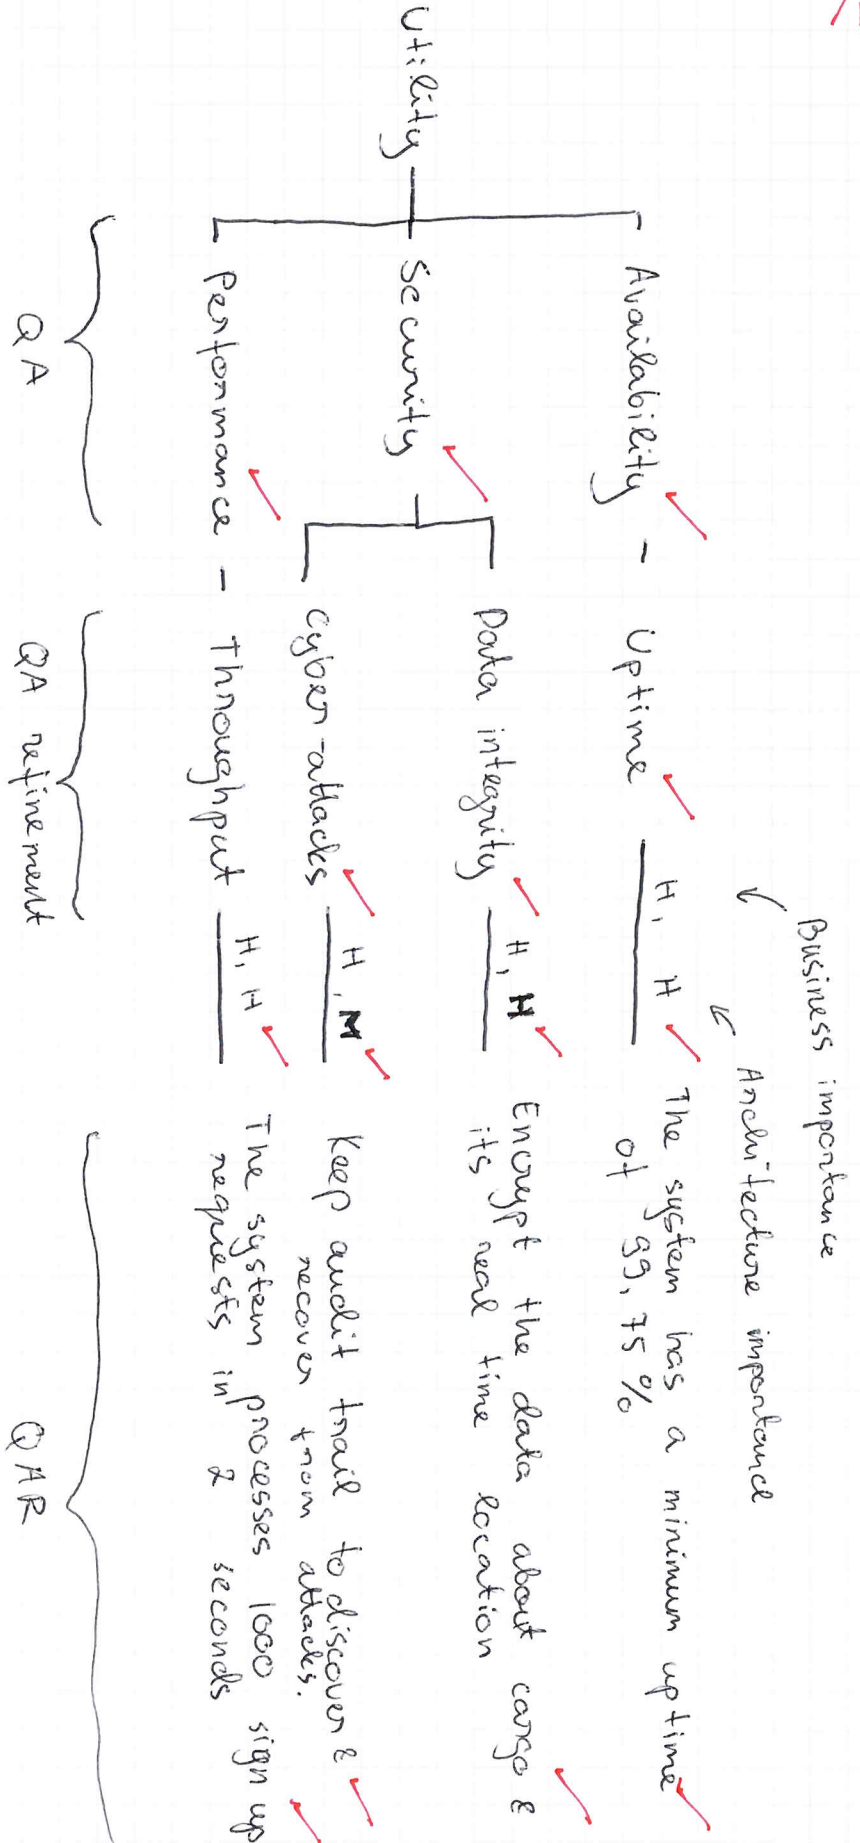 Business importance
Architecture importance
Utility
Availability - Uptime
H, H
The system has a minimum uptime
of 99,75%
Security
Data integrity
H, H
Encrypt the data about cargo &
its real time location
Cyber-attacks
H, M
Keep audit trail to discover &
recover from attacks.
Performance - Throughput
H, H
The system processes 1000 sign up
requests in 2 seconds
QA
QA refinement
QAR